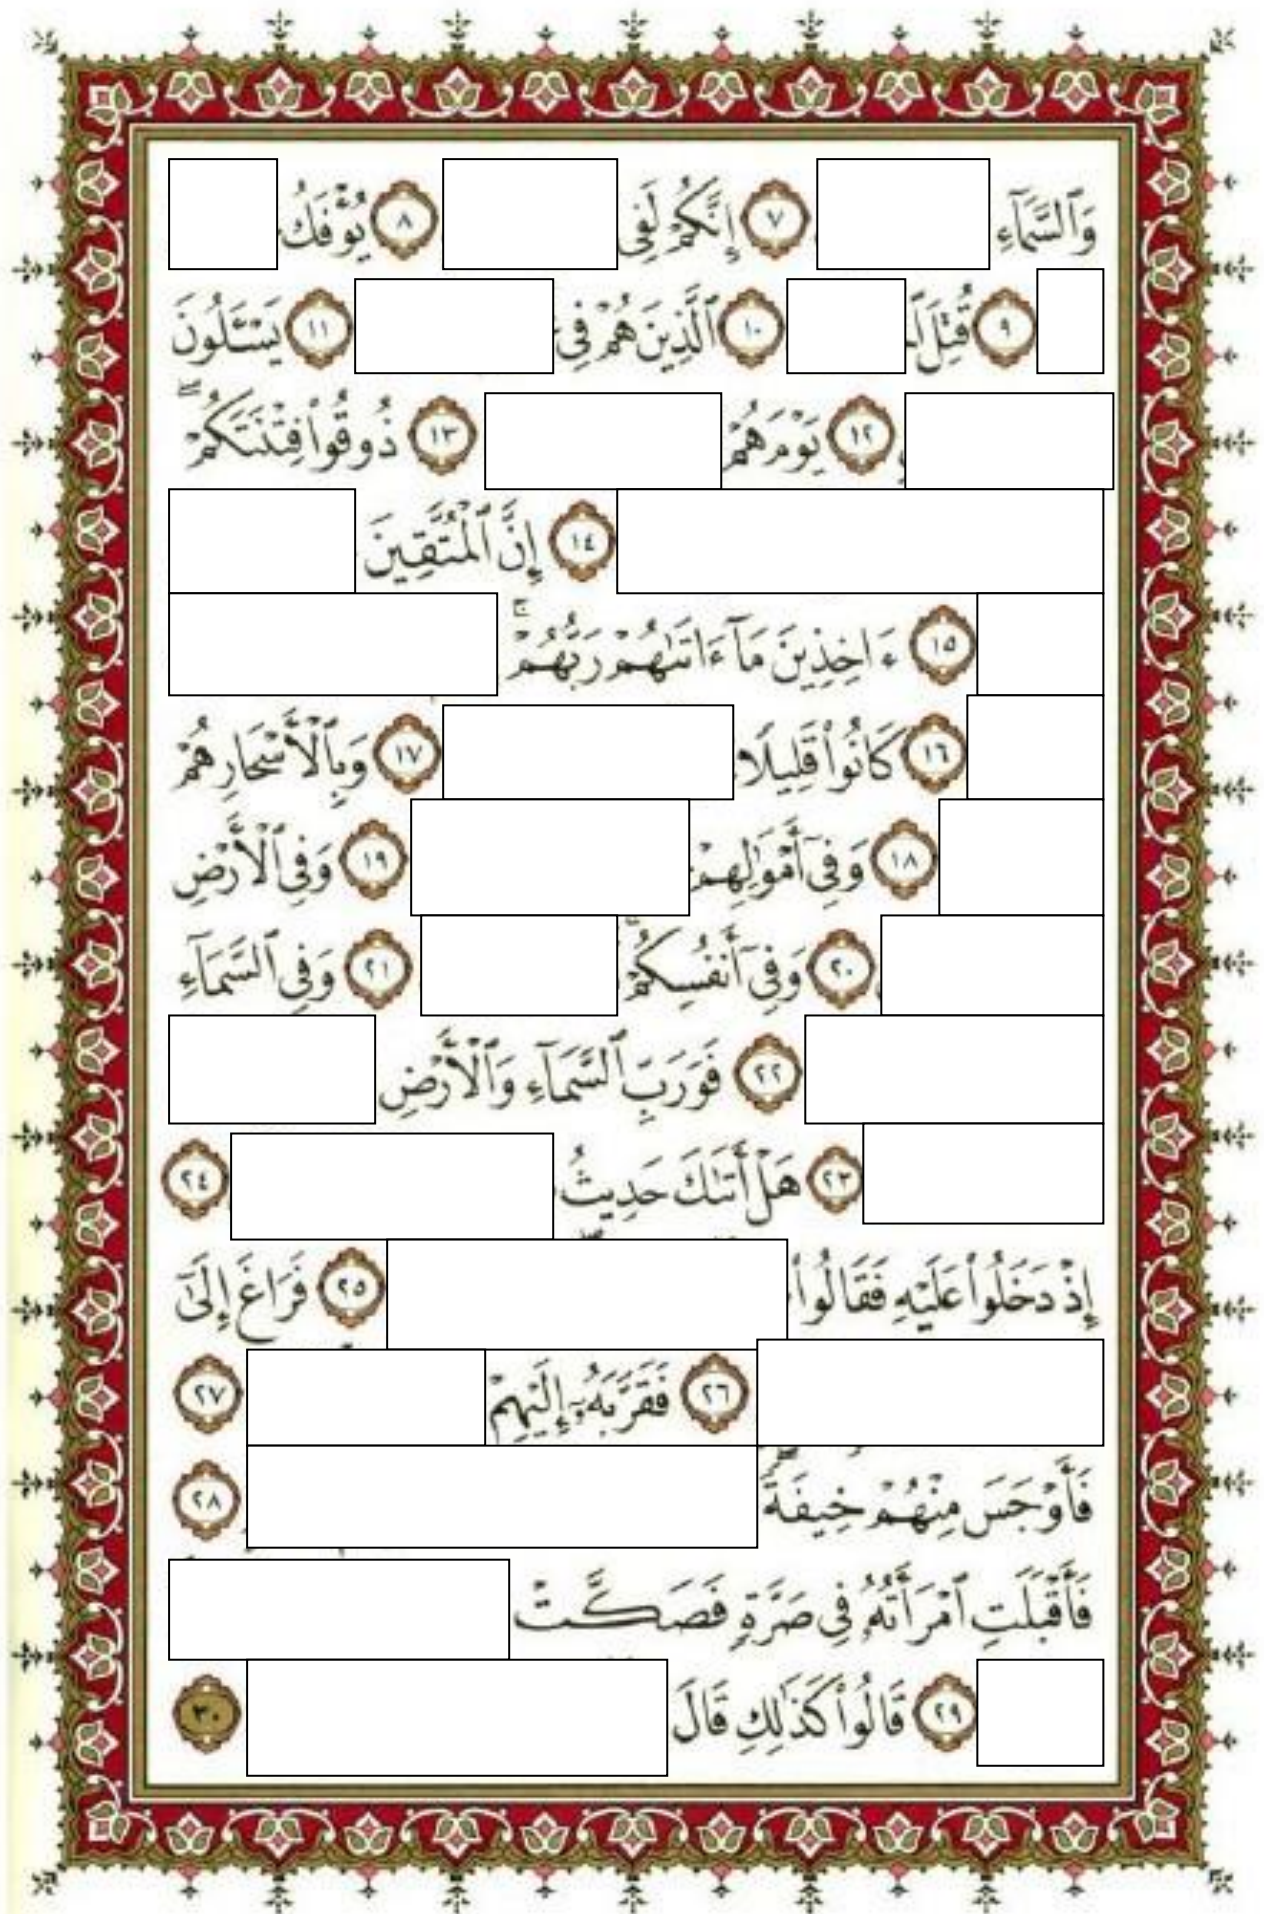 وَٱلسَّمَآءِ ٧ إِنَّكُمْ لَفِى ٨ يُؤْفَكُ
٩ قُتِلَ ١٠ ٱلَّذِينَ هُمْ فِى ١١ يَسْـَٔلُونَ
١٢ يَوْمَ هُمْ ١٣ ذُوقُوا۟ فِتْنَتَكُمْ
١٤ إِنَّ ٱلْمُتَّقِينَ
١٥ ءَاخِذِينَ مَآ ءَاتَىٰهُمْ رَبُّهُمْ ۚ
١٦ كَانُوا۟ قَلِيلًا ١٧ وَبِٱلْأَسْحَارِ هُمْ
١٨ وَفِىٓ أَمْوَٰلِهِمْ ١٩ وَفِى ٱلْأَرْضِ
٢٠ وَفِىٓ أَنفُسِكُمْ ٢١ وَفِى ٱلسَّمَآءِ
٢٢ فَوَرَبِّ ٱلسَّمَآءِ وَٱلْأَرْضِ
٢٣ هَلْ أَتَىٰكَ حَدِيثُ ٢٤
إِذْ دَخَلُوا۟ عَلَيْهِ فَقَالُوا۟ ٢٥ فَرَاغَ إِلَىٰٓ
٢٦ فَقَرَّبَهُۥٓ إِلَيْهِمْ ٢٧
فَأَوْجَسَ مِنْهُمْ خِيفَةً ۖ ٢٨
فَأَقْبَلَتِ ٱمْرَأَتُهُۥ فِى صَرَّةٍ فَصَكَّتْ
٢٩ قَالُوا۟ كَذَٰلِكِ قَالَ ٣٠